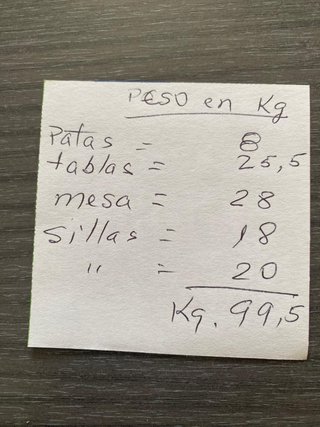 PESO en Kg
Patas = 8
tablas = 25,5
mesa = 28
sillas = 18
" = 20
Kg. 99,5